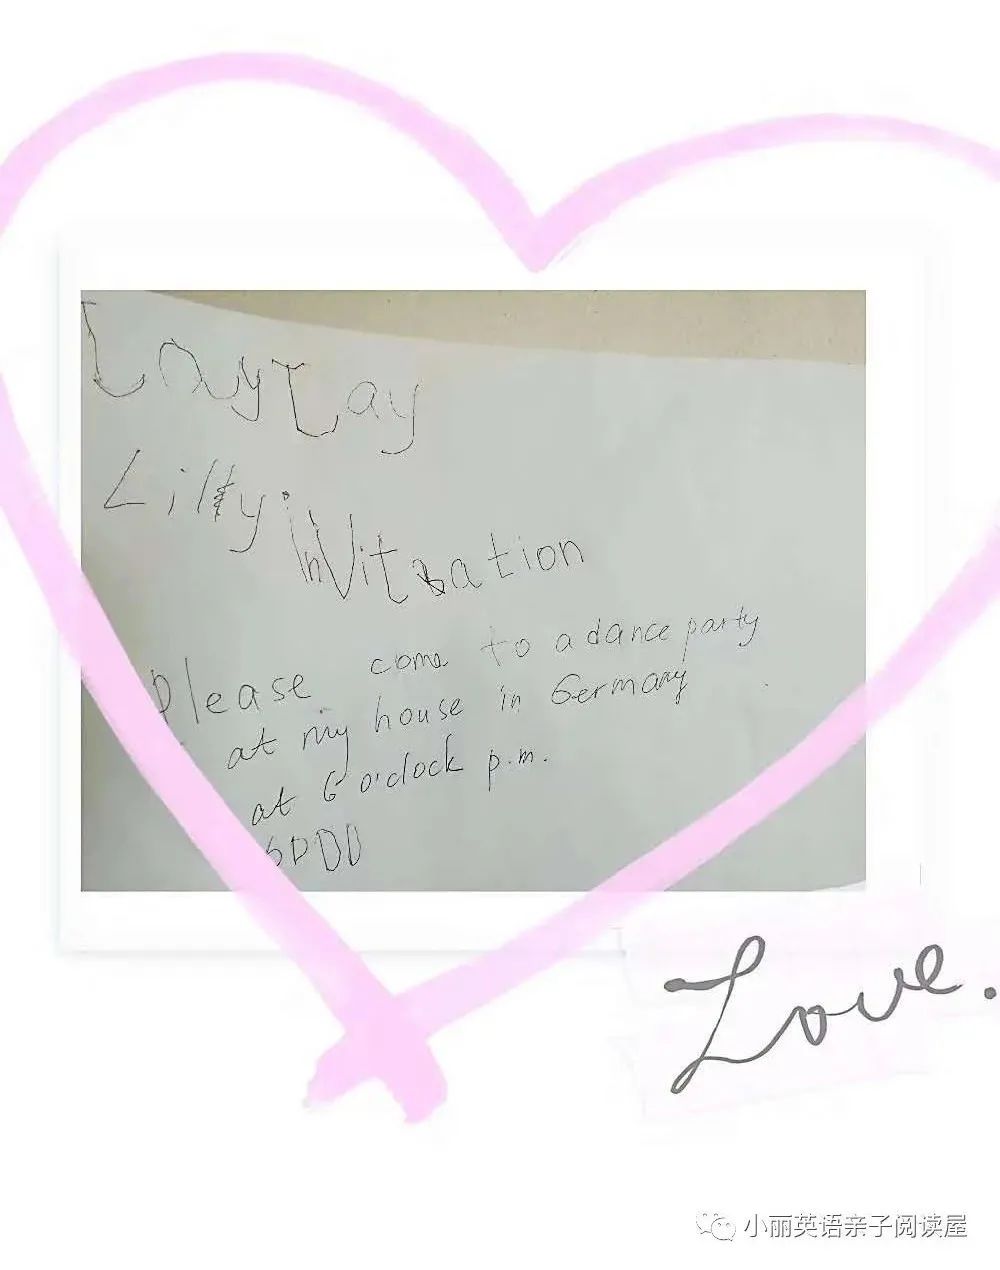 Lay Lay
Lilly
inVitation
Please come to a dance party
at my house in Germany
at 6 o'clock p.m.
Love.
小丽英语亲子阅读屋